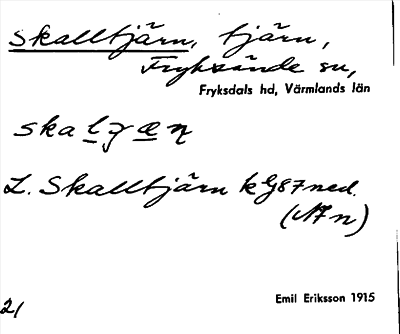 Skalltjärn, tjärn,
Fryksände sn,
Fryksdals hd, Värmlands län
L. Skalltjärn kG87ned.
Emil Eriksson 1915
21